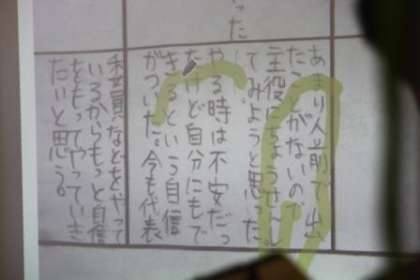 った
あまり人前で出
たことがないので
主役にちょうせんし
てみようと思った。
やる時は不安だっ
たけど自分にもで
きるという自信
がついた。今も代表
委員などをやって
いるからもっと自信
をもってやっていき
たいと思う。